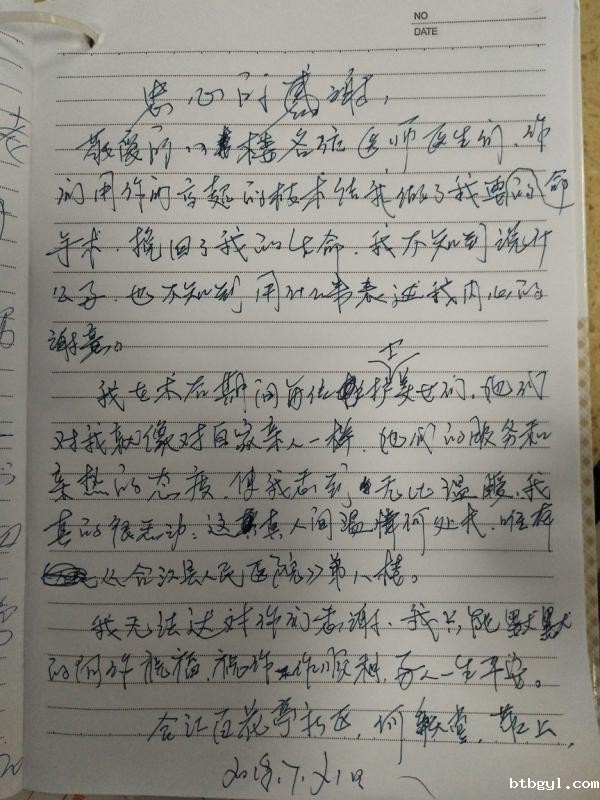 NO
DATE
忠心的感谢,
敬爱的八楼各位医师医生们,你
们用你们高超的技术给我做了我要的命
手术,挽回了我的生命,我不知到说什
么好,也不知到用什么来表达我内心的
谢意。
我在术后期间每位护士美女们,他们
对我就像对自家亲人一样,他们的服务和
亲热的态度,使我感到无比温暖,我
真的很感动:这真人间温情何处找,唯有
《合江县人民医院》第八楼。
我无法达对你们感谢,我只能默默
的向你祝福,祝你工作顺利,家人一生平安。
合江百花亭社区,何
2018.7.21日
btbgyl.com